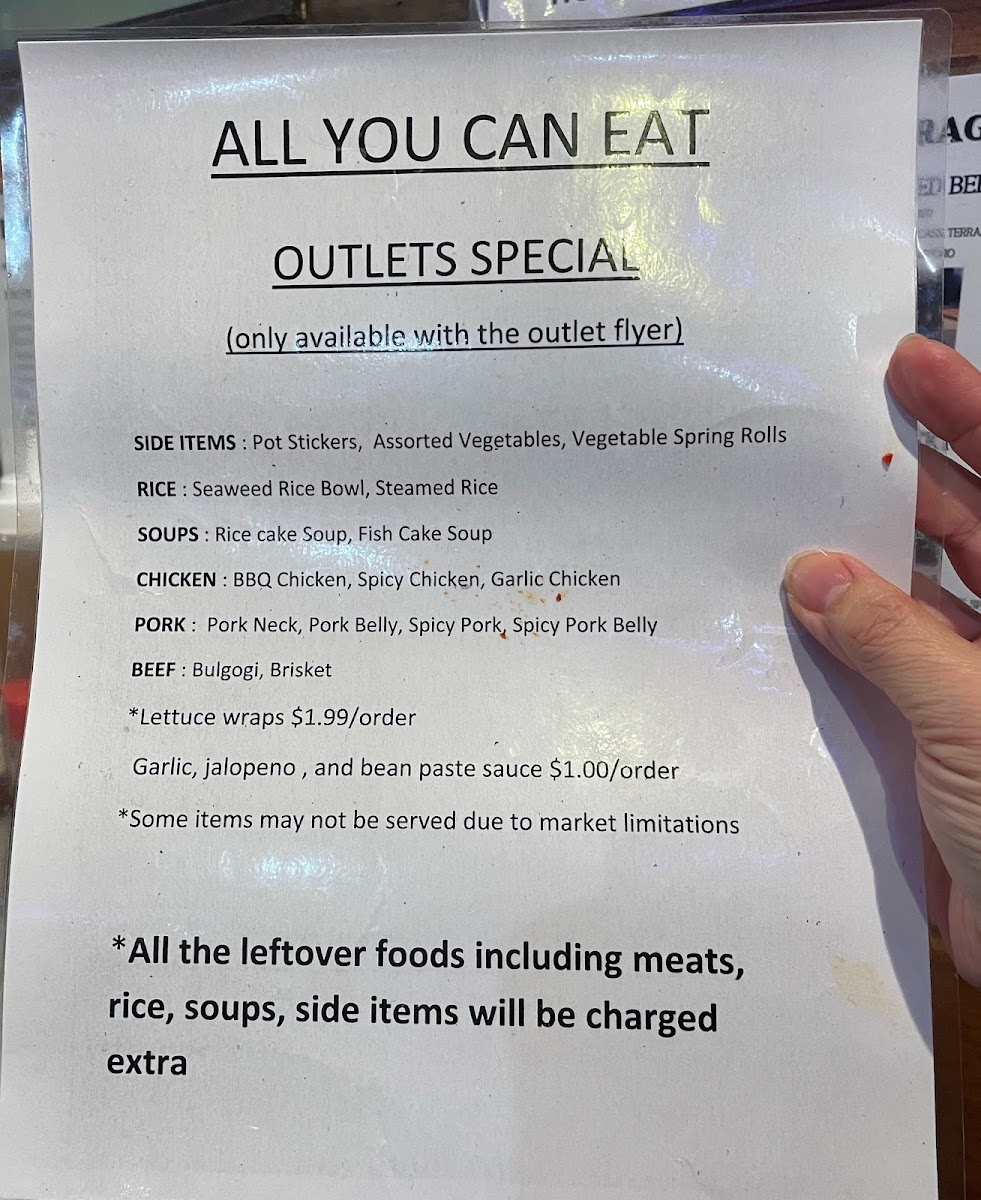 ALL YOU CAN EAT
OUTLETS SPECIAL
(only available with the outlet flyer)
SIDE ITEMS : Pot Stickers, Assorted Vegetables, Vegetable Spring Rolls
RICE : Seaweed Rice Bowl, Steamed Rice
SOUPS : Rice cake Soup, Fish Cake Soup
CHICKEN : BBQ Chicken, Spicy Chicken, Garlic Chicken
PORK : Pork Neck, Pork Belly, Spicy Pork, Spicy Pork Belly
BEEF : Bulgogi, Brisket
*Lettuce wraps $1.99/order
Garlic, jalopeno , and bean paste sauce $1.00/order
*Some items may not be served due to market limitations
*All the leftover foods including meats,
rice, soups, side items will be charged
extra